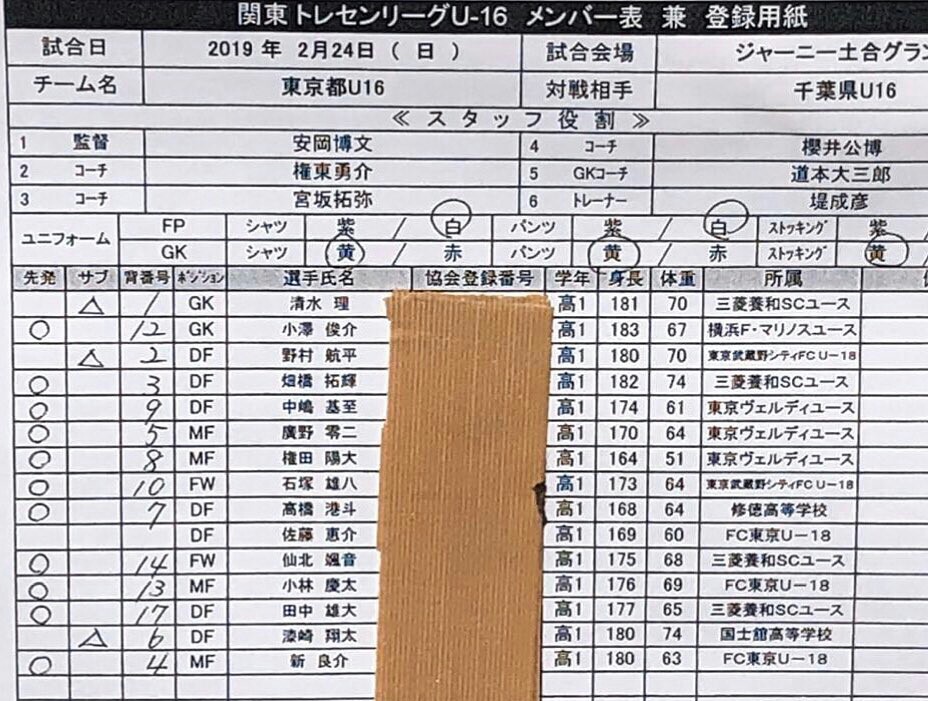 関東トレセンリーグU-16 メンバー表 兼 登録用紙
試合日 2019 年 2月24日 ( 日 ) 試合会場 ジャーニー土合グラン
チーム名 東京都U16 対戦相手 千葉県U16
≪ スタッフ役割 ≫
1 監督 安岡博文 4 コーチ 櫻井公博
2 コーチ 権東勇介 5 GKコーチ 道本大三郎
3 コーチ 宮坂拓弥 6 トレーナー 堤成彦
ユニフォーム FP シャツ 紫 / 白 パンツ 紫 / 白 ストッキング 紫
GK シャツ 黄 / 赤 パンツ 黄 / 赤 ストッキング 黄
先発 サブ 背番号 ポジション 選手氏名 協会登録番号 学年 身長 体重 所属
△ 1 GK 清水 理 高1 181 70 三菱養和SCユース
○ 12 GK 小澤 俊介 高1 183 67 横浜F・マリノスユース
△ 2 DF 野村 航平 高1 180 70 東京武蔵野シティFC U-18
○ 3 DF 畑橋 拓輝 高1 182 74 三菱養和SCユース
○ 9 DF 中嶋 基至 高1 174 61 東京ヴェルディユース
○ 5 MF 廣野 零二 高1 170 64 東京ヴェルディユース
○ 8 MF 権田 陽大 高1 164 51 東京ヴェルディユース
○ 10 FW 石塚 雄八 高1 173 64 東京武蔵野シティFC U-18
○ 7 DF 高橋 港斗 高1 168 64 修徳高等学校
DF 佐藤 恵介 高1 169 60 FC東京U-18
○ 14 FW 仙北 颯音 高1 175 68 三菱養和SCユース
○ 13 MF 小林 慶太 高1 176 69 FC東京U-18
○ 17 DF 田中 雄大 高1 177 65 三菱養和SCユース
△ 6 DF 漆崎 翔太 高1 180 74 国士舘高等学校
○ 4 MF 新 良介 高1 180 63 FC東京U-18